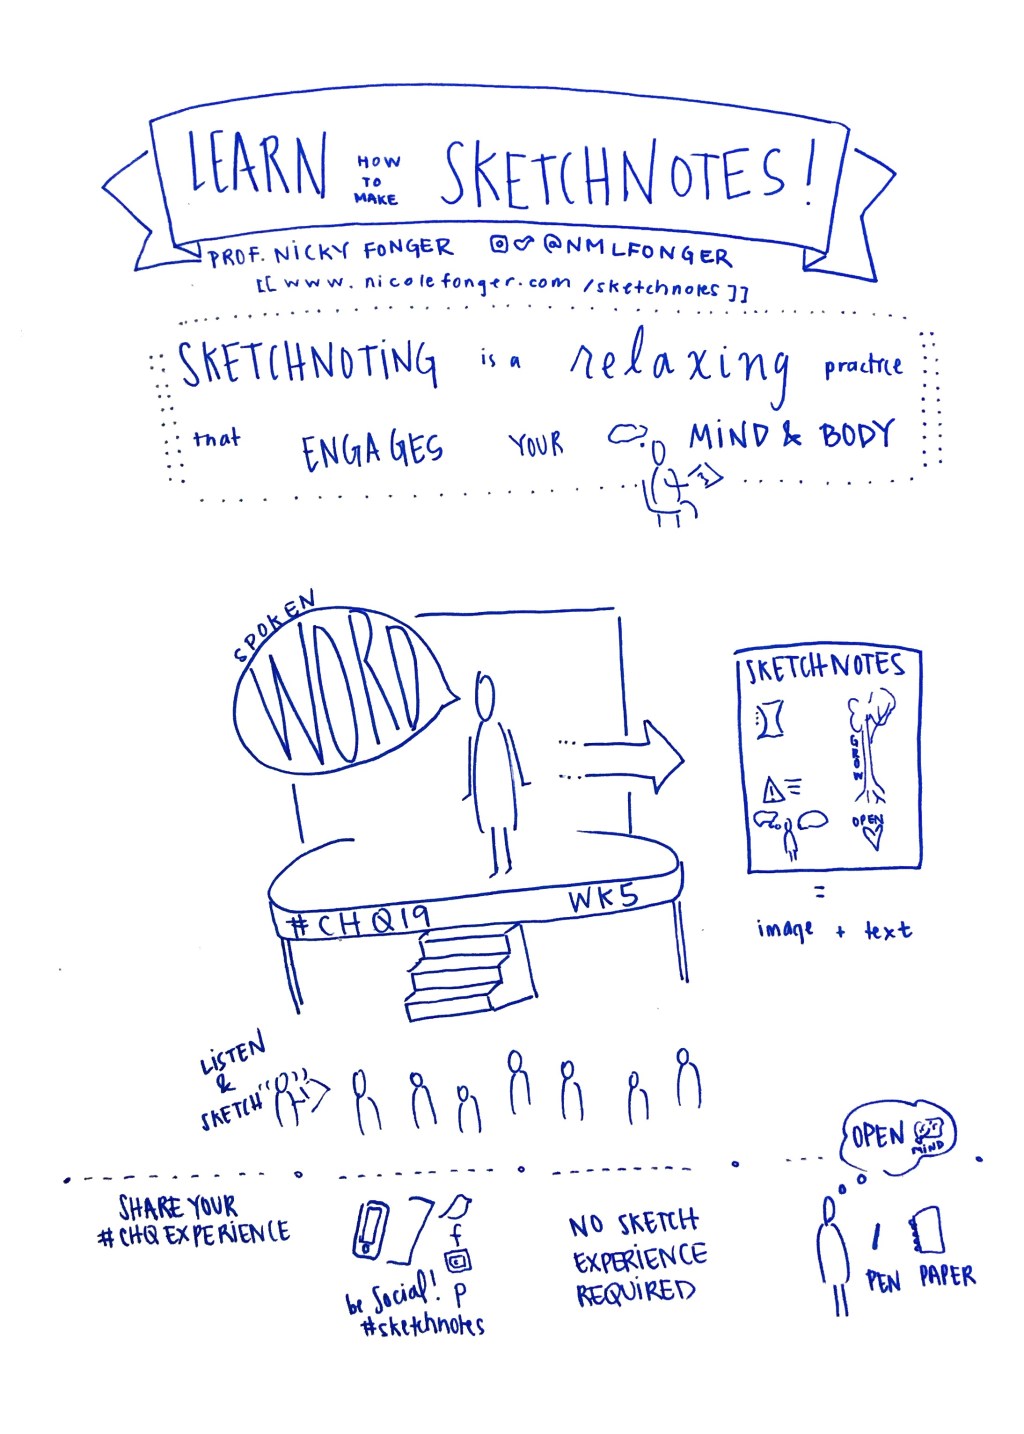 LEARN HOW TO MAKE SKETCHNOTES!
PROF. NICKY FONGER @NMLFONGER
[[ www.nicolefonger.com/sketchnotes ]]
SKETCHNOTING is a relaxing practice
that ENGAGES YOUR MIND & BODY
SPOKEN
WORD
SKETCHNOTES
GROW
OPEN
=
image + text
#CHQ19 WK5
LISTEN
&
SKETCH
OPEN
MIND
SHARE YOUR
#CHQ EXPERIENCE
f
be Social! p
#sketchnotes
NO SKETCH
EXPERIENCE
REQUIRED
PEN PAPER